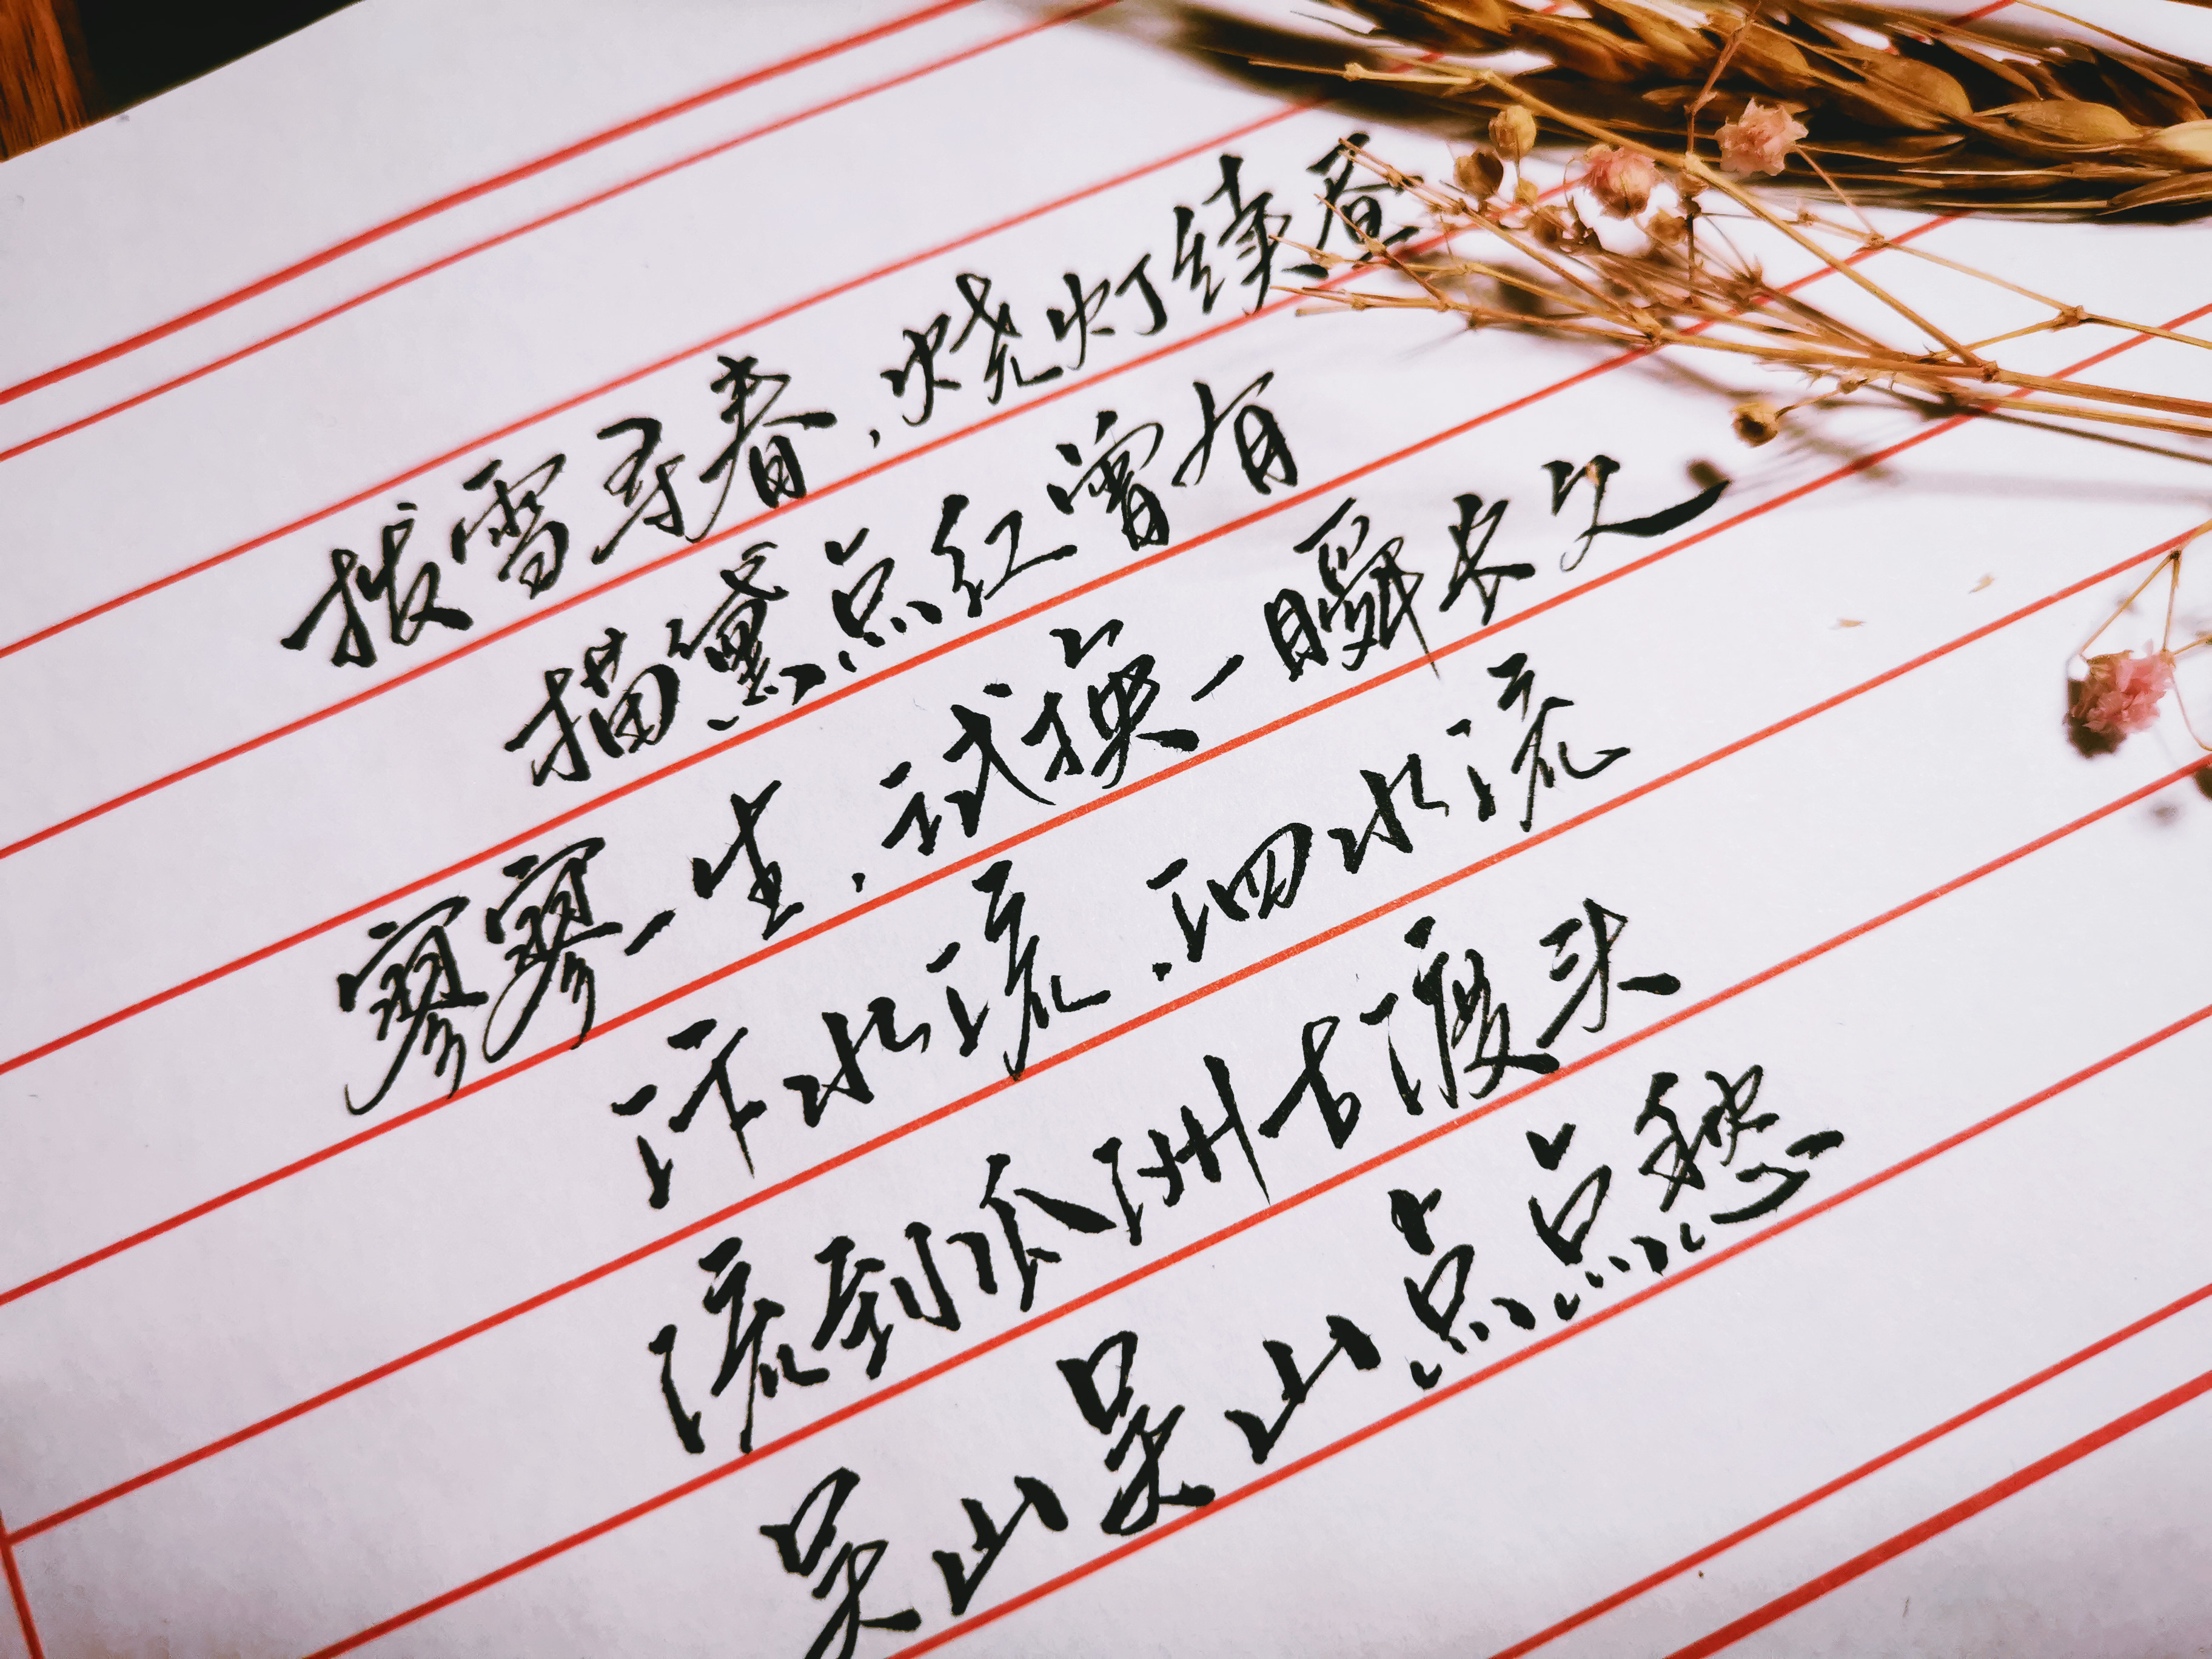 拨雪寻春，烧灯续昼
描黛点红曾有
寥寥一生，试换一瞬长久
汴水流，泗水流
流到瓜洲古渡头
吴山吴山点点愁